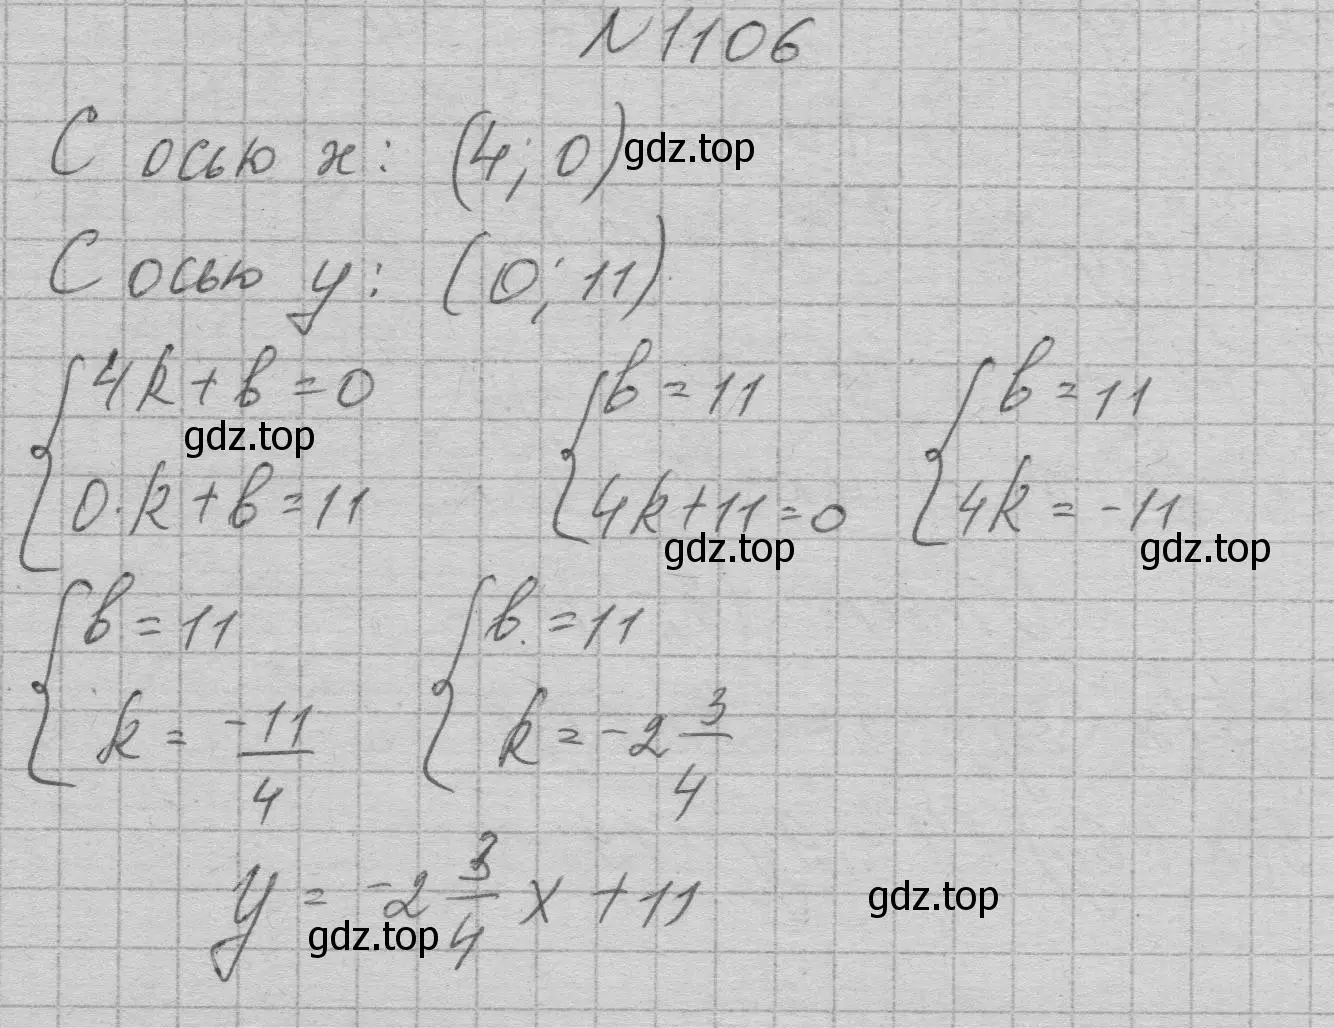 N 1106
С осью x: (4; 0)
gdz.top
С осью y: (0; 11)
4k + b = 0
0·k + b = 11
gdz.top
b = 11
4k + 11 = 0
gdz.top
b = 11
4k = -11
gdz.top
b = 11
k = -11/4
b = 11
k = -2 3/4
y = -2 3/4 x + 11
gdz.top
gdz.top